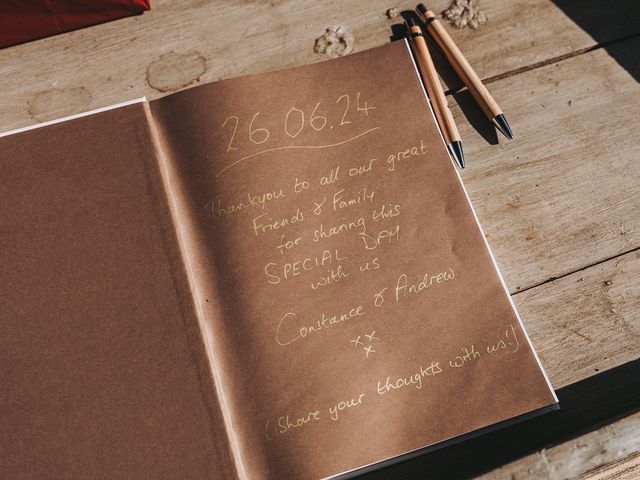 26.06.24
Thankyou to all our great
Friends & Family
for sharing this
SPECIAL DAY
with us
Constance & Andrew
x x
x
(Share your thoughts with us!)